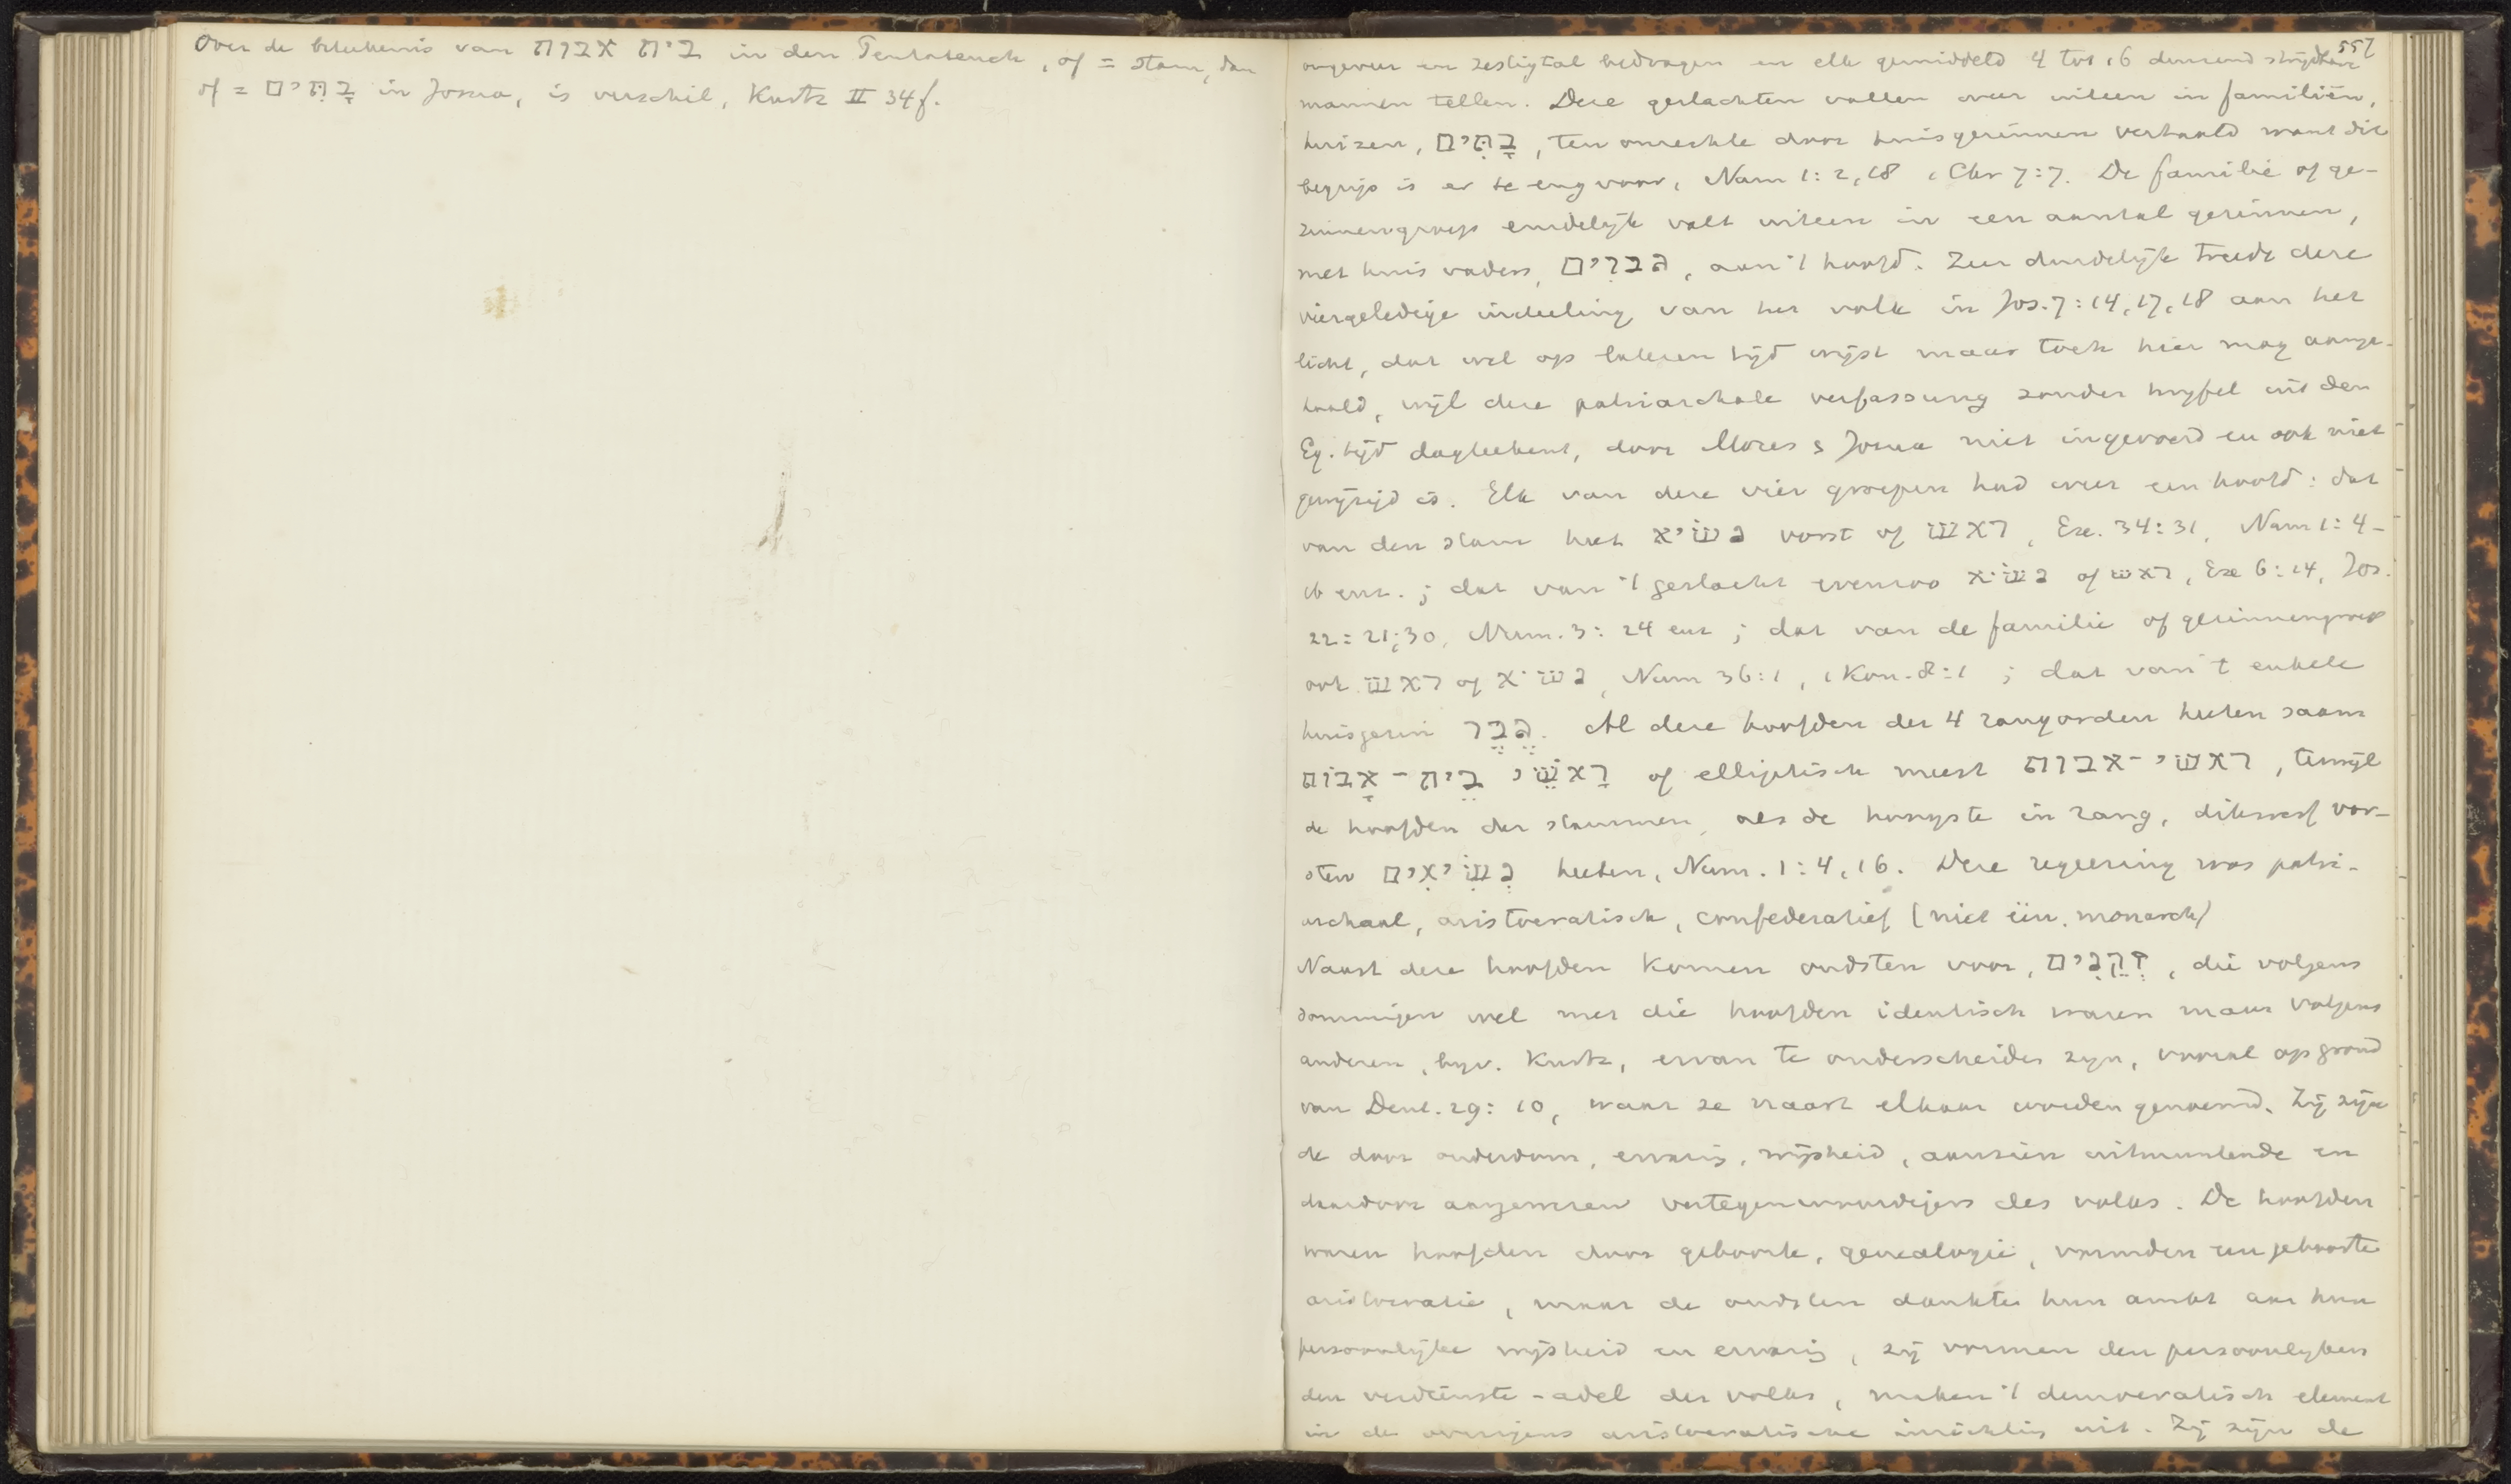 Over de beteekenis van בית אבות in den Pentateuch, of = stam, dan
of = בָּתִּים in Josua, is verschil, Kurtz II 34f.
557
ongeveer een zestigtal bedragen en elk gemiddeld 4 tot 16 duizend strijdbare
mannen tellen. Deze geslachten vallen weer uiteen in familiën,
huizen, בָּתִּים, ten onrechte door huisgezinnen vertaald want dit
begrip is er te eng voor, Num 1:2,18 1 Chr 7:7. De familie of ge-
zinnengroep eindelijk valt uiteen in een aantal gezinnen,
met huisvaders, גברִים, aan 't hoofd. Zeer duidelijk treedt deze
viergeledige indeeling van het volk in Jos. 7:14,17,18 aan het
licht, dat wel op lateren tijd wijst maar toch hier mag aange-
haald, wijl deze patriarchale verfassung zonder twyfel uit den
Eg. tijd dagteekent, door Mozes & Josua niet ingevoerd en ook niet
gewijzigd is. Elk van deze vier groepen had weer een hoofd: dat
van den stam heet נשׂיא vorst of ראשׁ, Exe. 34:31, Num 1:4-
16 enz.; dat van 't geslacht evenzoo נשׂיא of ראשׁ, Exe 6:14, Jos.
22:21,30, Num. 3:24 enz; dat van de familie of gezinnengroep
ook ראשׁ of נשׂיא, Num 36:1, 1 Kon. 8:1; dat van 't enkele
huisgezin גֶּבֶר. Al deze hoofden der 4 rangorden heeten saam
רָאשֵׁי בֵּית-אָבוֹת of elliptisch meest ראשׁי-אבות, terwijl
de hoofden der stammen, als de hoogste in rang, dikwerf vor-
sten נְשִׂיאִים heeten, Num. 1:4,16. Deze regeering was patri-
archaal, aristocratisch, confederatief (niet één. monarch)
Naast deze hoofden komen oudsten voor, זְקֵנִים, die volgens
sommigen wel met die hoofden identisch waren maar volgens
anderen, byv. Kurtz, ervan te onderscheiden zyn, vooral op grond
van Deut. 29:10, waar ze naast elkaar worden genoemd. Zij zijn
de door ouderdom, ervaring, wijsheid, aanzien uitmuntende en
daardoor aangewezen vertegenwoordigers des volks. De hoofden
waren hoofden door geboorte, genealogie, vormden een geboorte
aristocratie, maar de oudsten dankten hun ambt aan hun
persoonlijke wijsheid en ervaring, zij vormen den persoonlyken
den verdienste-adel der volks, maken 't democratisch element
in de overigens aristocratische inrichting uit. Zij zijn de